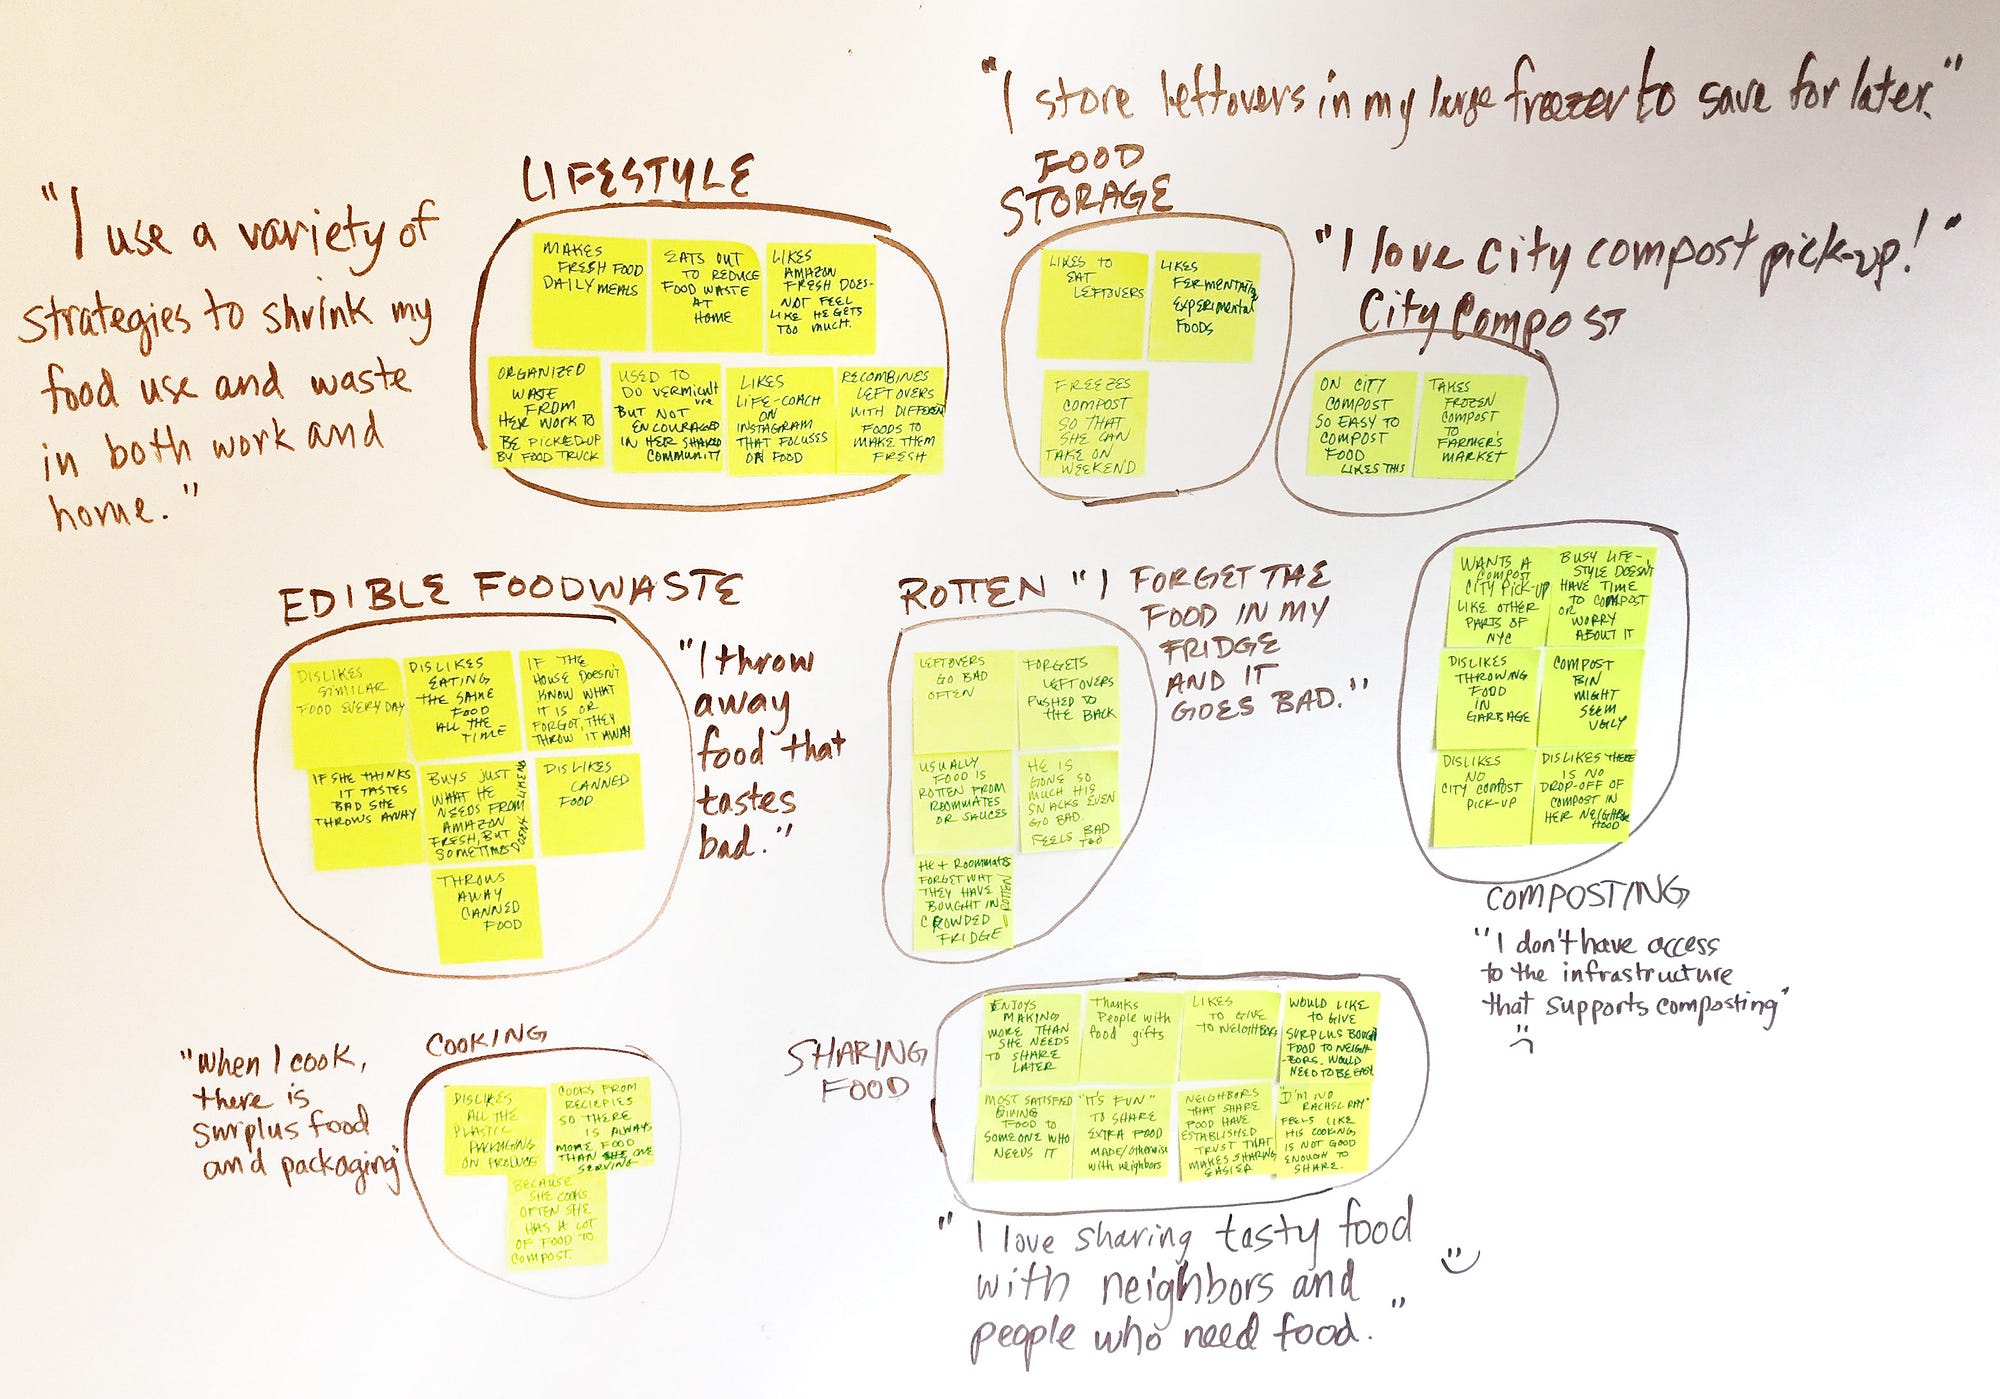 "I store leftovers in my large freezer to save for later."
LIFESTYLE
FOOD
STORAGE
"I use a variety of
strategies to shrink my
food use and waste
in both work and
home."
"I love city compost pick-up!"
City Compost
MAKES
FRESH FOOD
DAILY MEALS
EATS OUT
TO REDUCE
FOOD WASTE
AT
HOME
LIKES
AMAZON
FRESH DOES-
NOT FEEL
LIKE HE GETS
TOO MUCH.
ORGANIZED
WASTE
FROM
HER WORK TO
BE PICKED UP
BY FOOD TRUCK
USED TO
DO VERMICULT
URE
BUT NOT
ENCOURAGED
IN HER SHARED
COMMUNITY
LIKES
LIFE-COACH
ON
INSTAGRAM
THAT FOCUSES
ON FOOD
RECOMBINES
LEFTOVERS
WITH DIFFERENT
FOODS TO
MAKE THEM
FRESH
LIKES TO
EAT
LEFTOVERS
LIKES
EXPERIMENTAL
FOODS
FREEZES
COMPOST
SO THAT
SHE CAN
TAKE ON
WEEKEND
ON CITY
COMPOST
SO EASY TO
COMPOST
FOOD
LIKES THIS
TAKES
FROZEN
COMPOST
TO
FARMER'S
MARKET
EDIBLE FOODWASTE
"I throw
away
food that
tastes
bad."
DISLIKES
SIMILAR
FOOD EVERY DAY
DISLIKES
EATING
THE SAME
FOOD
ALL THE
TIME
IF THE
HOUSE DOESN'T
KNOW WHAT
IT IS OR
FORGOT, THEY
THROW IT AWAY
IF SHE THINKS
IT TASTES
BAD SHE
THROWS AWAY
BUYS JUST
WHAT HE
NEEDS FROM
AMAZON
FRESH, BUT
SOMETIMES
DISLIKES
CANNED
FOOD
THROWS
AWAY
CANNED
FOOD
ROTTEN
"I FORGET THE
FOOD IN MY
FRIDGE
AND IT
GOES BAD."
LEFTOVERS
GO BAD
OFTEN
FORGETS
LEFTOVERS
PUSHED TO
THE BACK
USUALLY
FOOD IS
ROTTEN FROM
ROOMMATES
OR SAUCES
HE IS
GONE SO
MUCH HIS
SNACKS EVEN
GO BAD.
FEELS BAD
TOO
HE + ROOMMATES
FORGET WHAT
THEY HAVE
BOUGHT IN
CROWDED
FRIDGE
ROTTEN
WANTS A
COMPOST
CITY PICK-UP
LIKE OTHER
PARTS OF
NYC
BUSY LIFE-
STYLE DOESN'T
HAVE TIME
TO COMPOST
OR
WORRY
ABOUT IT
DISLIKES
THROWING
FOOD
IN
GARBAGE
COMPOST
BIN
MIGHT
SEEM
UGLY
DISLIKES
NO
CITY COMPOST
PICK-UP
DISLIKES THERE
IS NO
DROP-OFF OF
COMPOST IN
HER NEIGHBOR
HOOD
COMPOSTING
"I don't have access
to the infrastructure
that supports composting"
COOKING
"When I cook,
there is
surplus food
and packaging"
DISLIKES
ALL THE
PLASTIC
PACKAGING
ON PRODUCE
COOKS FROM
RECIEPIES
SO THERE
IS ALWAYS
MORE FOOD
THAN ONE
SERVING
BECAUSE
SHE COOKS
OFTEN SHE
HAS A LOT
OF FOOD TO
COMPOST.
SHARING
FOOD
ENJOYS
MAKING
MORE THAN
SHE NEEDS
TO SHARE
LATER
Thanks
People with
food gifts
LIKES
TO GIVE
TO NEIGHBORS
WOULD LIKE
TO GIVE
SURPLUS BOUGHT
FOOD TO NEIGH
-BORS. WOULD
NEED TO BE EASY
MOST SATISFIED
GIVING
FOOD TO
SOMEONE WHO
NEEDS IT
"IT'S FUN"
TO SHARE
EXTRA FOOD
MADE/otherwise
with neighbors
NEIGHBORS
THAT SHARE
FOOD HAVE
ESTABLISHED
TRUST THAT
MAKES SHARING
EASIER
"I'M NO
RACHEL RAY"
FEELS LIKE
HIS COOKING
IS NOT GOOD
ENOUGH TO
SHARE.
"I love sharing tasty food
with neighbors and
people who need food."